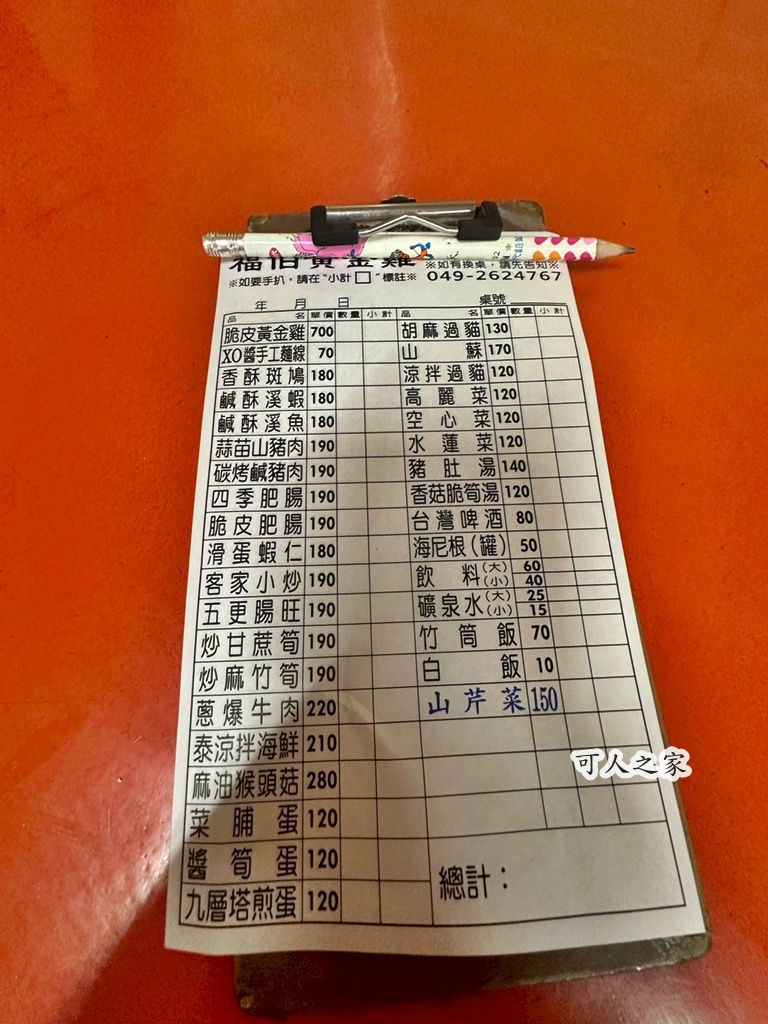 福伯黃金雞 ※如有換桌，請先告知※
※如要手扒，請在"小計□"標註※ 049-2624767
年 月 日 桌號
品名 單價 數量 小計 品名 單價 數量 小計
脆皮黃金雞 700 胡麻過貓 130
XO醬手工麵線 70 山蘇 170
香酥斑鳩 180 涼拌過貓 120
鹹酥溪蝦 180 高麗菜 120
鹹酥溪魚 180 空心菜 120
蒜苗山豬肉 190 水蓮菜 120
碳烤鹹豬肉 190 豬肚湯 140
四季肥腸 190 香菇脆筍湯 120
脆皮肥腸 190 台灣啤酒 80
滑蛋蝦仁 180 海尼根(罐) 50
客家小炒 190 飲料(大) 60 (小) 40
五更腸旺 190 礦泉水(大) 25 (小) 15
炒甘蔗筍 190 竹筒飯 70
炒麻竹筍 190 白飯 10
蔥爆牛肉 220 山芹菜 150
泰涼拌海鮮 210
麻油猴頭菇 280
菜脯蛋 120
醬筍蛋 120
九層塔煎蛋 120
總計：
可人之家